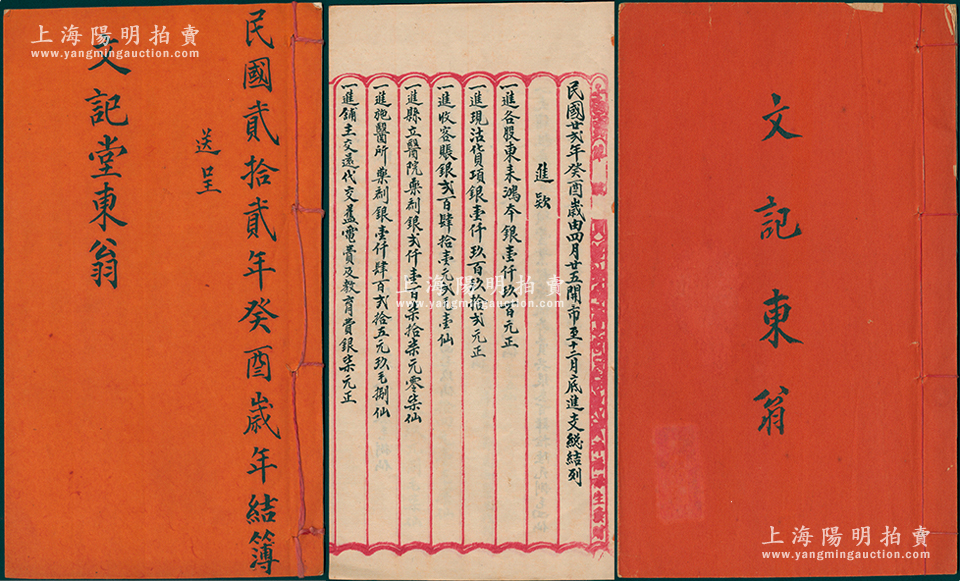 上海陽明拍賣
www.yangmingauction.com
民國貳拾貳年癸酉歲年結簿
送呈
文記堂東翁
民國廿弍年癸酉歲由四月廿五開市至十二月底進支総結列
進款
一進各股東来鴻本銀壹仟玖百元正
一進現沽貨項銀壹仟玖百玖拾弍元正
一進收客賬銀弍百肆拾壹元弍毛壹仙
一進縣立醫院藥剂銀弍仟壹百柒拾柒元零柒仙
一進施醫所藥剂銀壹仟肆百弍拾五元玖毛捌仙
一進鋪主交还代交舊電費及教育費銀柒元正
上海陽明拍賣
www.yangmingauction.com
文記東翁
上海陽明拍賣
www.yangmingauction.com